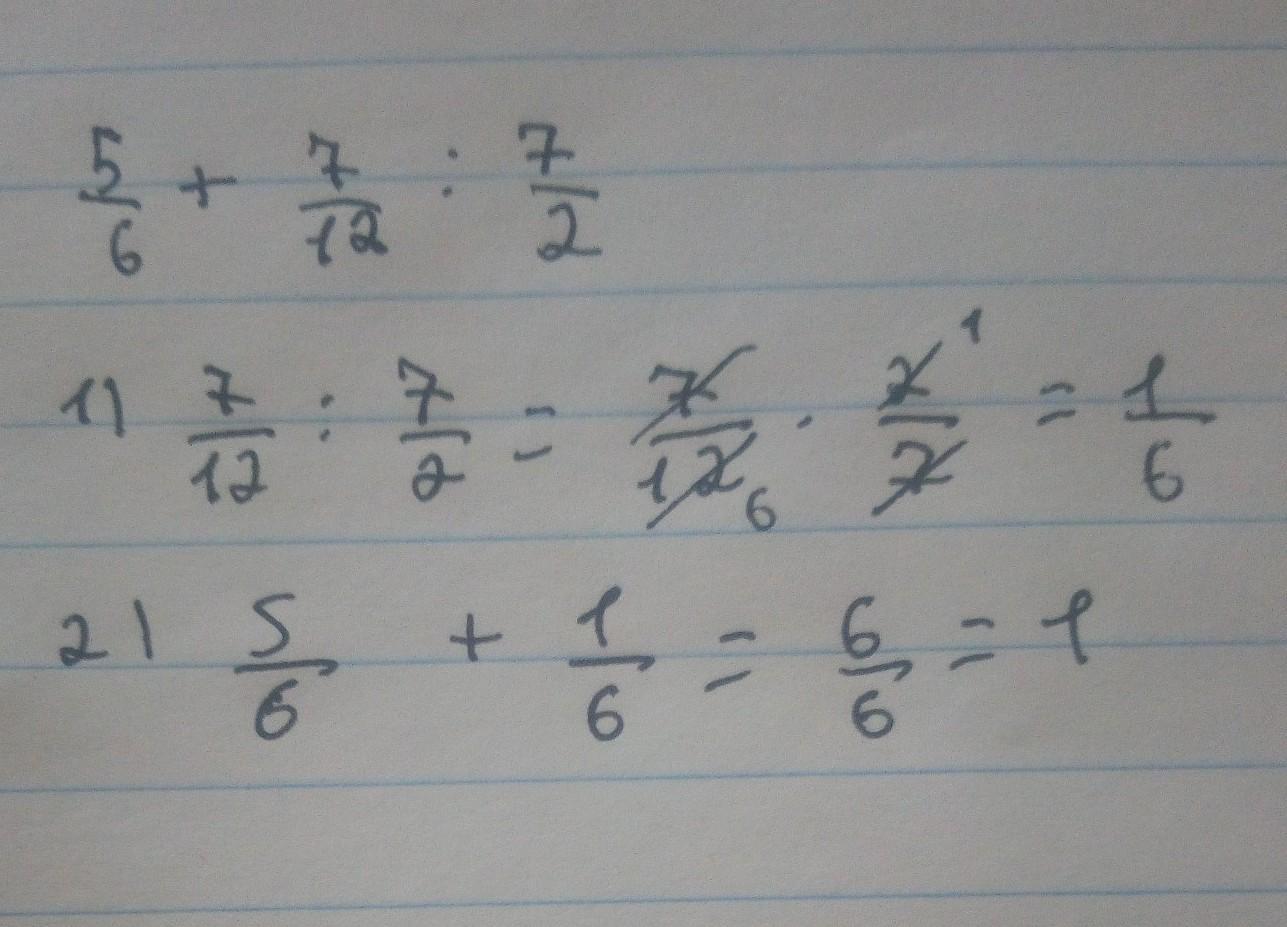 5/6 + 7/12 : 7/2
1) 7/12 : 7/2 = 7/12 6 · 2/7 1 = 1/6
2) 5/6 + 1/6 = 6/6 = 1